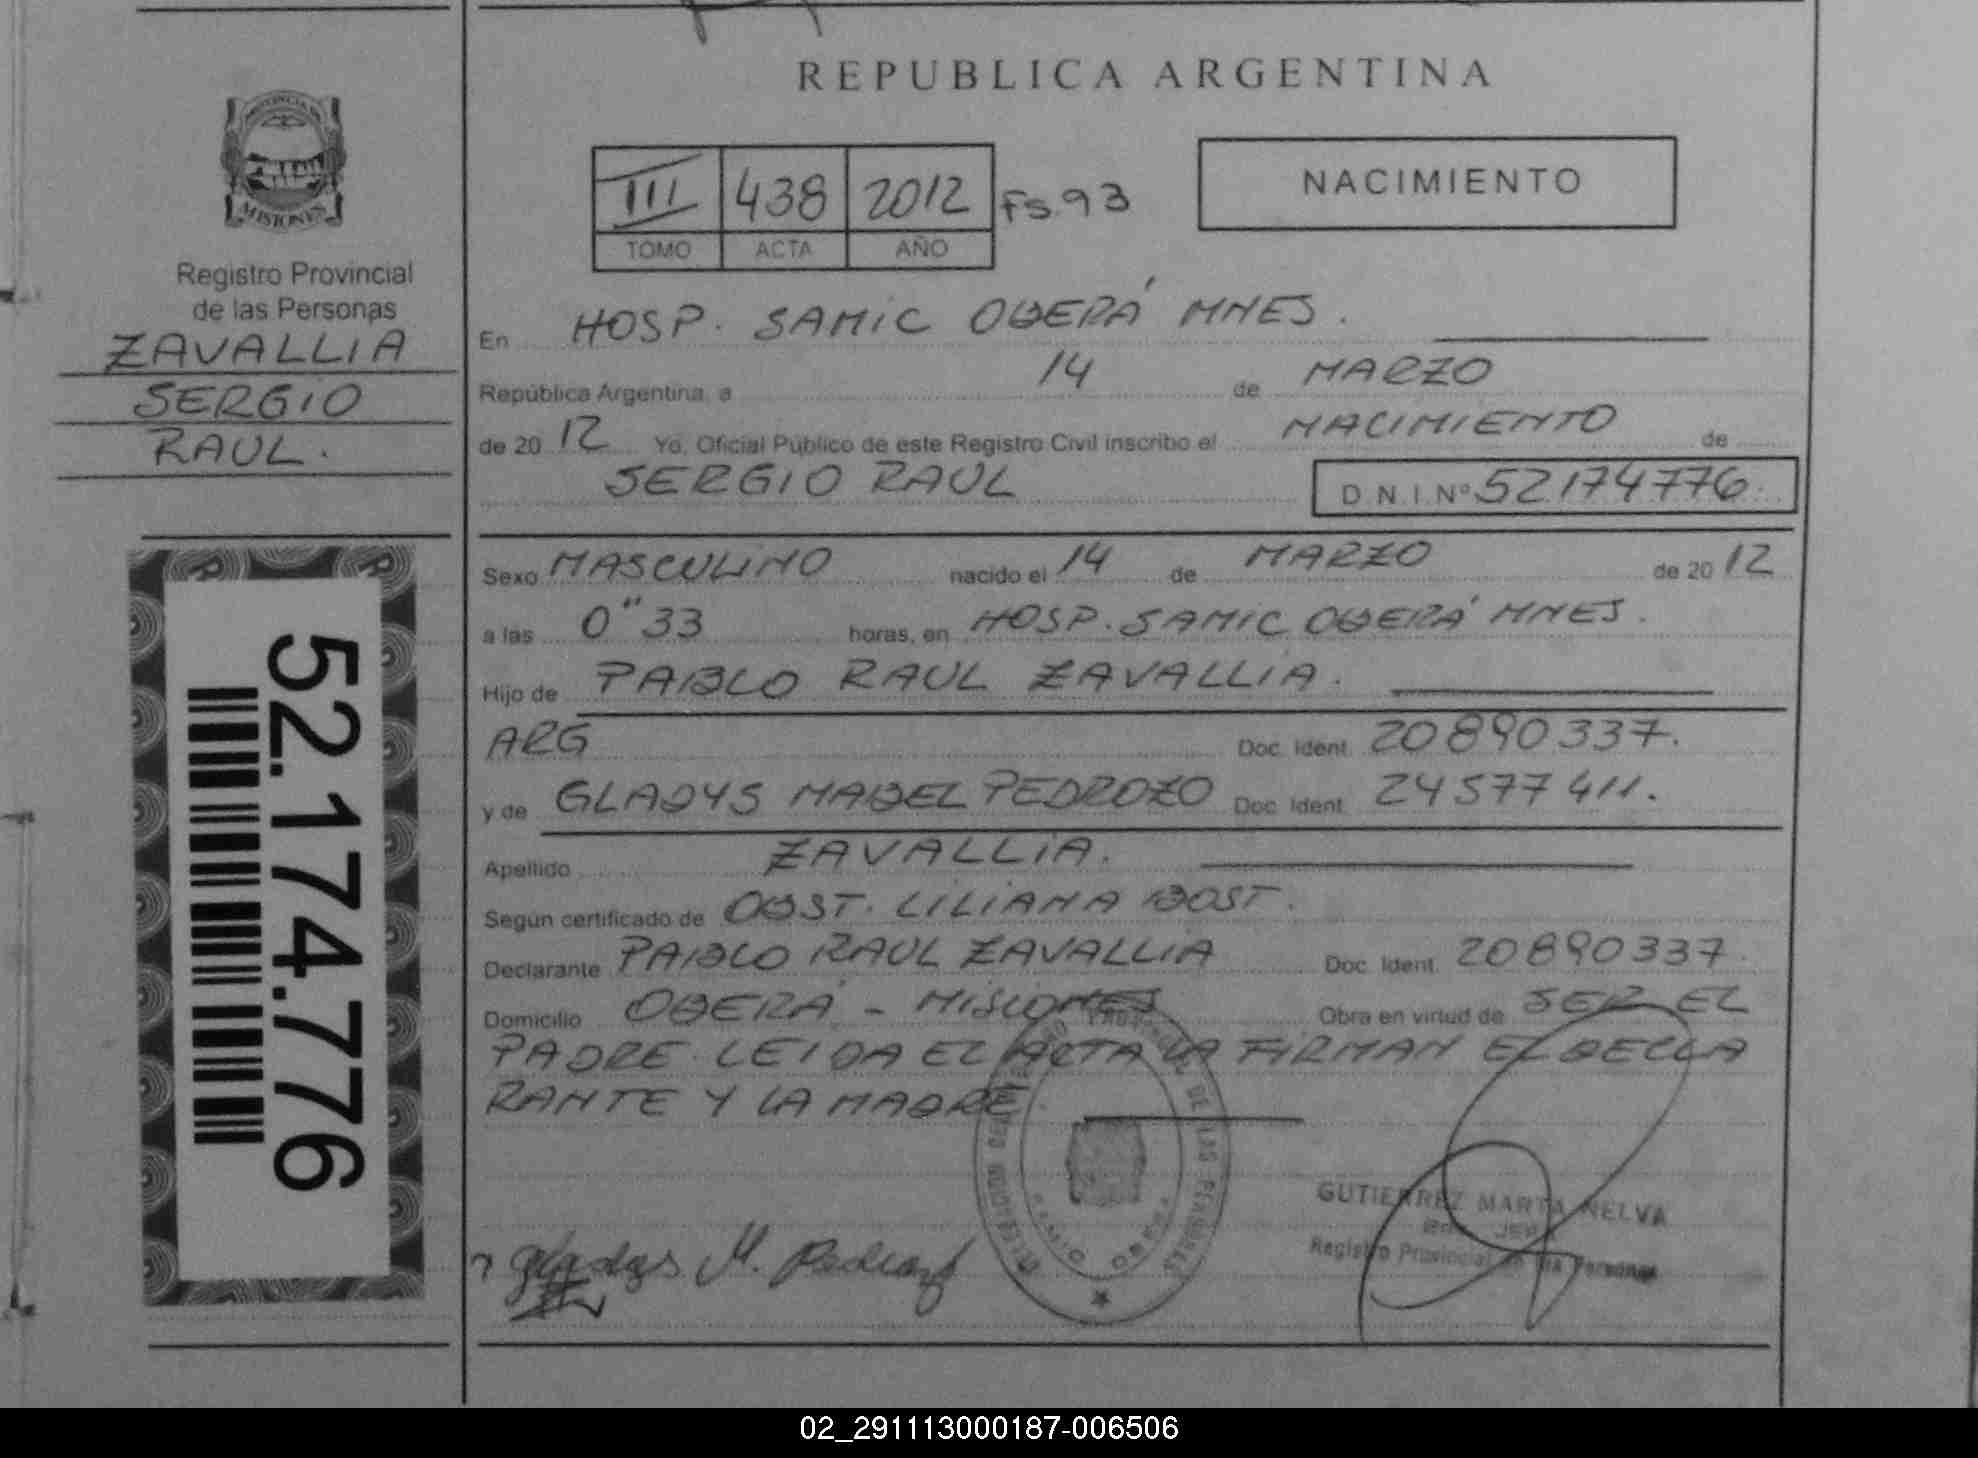 REPUBLICA ARGENTINA
PROVINCIA DE
MISIONES
Registro Provincial
de las Personas
ZAVALLIA
SERGIO
RAUL.
52.174.776
III 438 2012 Fs. 93
TOMO ACTA AÑO
NACIMIENTO
En HOSP. SAMIC OBERÁ MNES.
República Argentina, a 14 de MARZO
de 20 12 Yo, Oficial Público de este Registro Civil inscribo el NACIMIENTO de
SERGIO RAUL D.N.I. Nº 52174776.
Sexo MASCULINO nacido el 14 de MARZO de 20 12
a las 0"33 horas, en HOSP. SAMIC OBERÁ MNES.
Hijo de PABLO RAUL ZAVALLIA.
ARG Doc. Ident. 20890337.
y de GLADYS MABEL PEDROZO Doc. Ident. 24577411.
Apellido ZAVALLIA.
Según certificado de OBST. LILIANA BOST.
Declarante PABLO RAUL ZAVALLIA Doc. Ident. 20890337.
Domicilio OBERÁ - MISIONES Obra en virtud de SER EL
PADRE. LEIDA EL ACTA LA FIRMAN EL DECLA
RANTE Y LA MADRE
GUTIERREZ MARTA NELVA
Registro Provincial de las Personas
Gladys M. Pedrozo
02_291113000187-006506